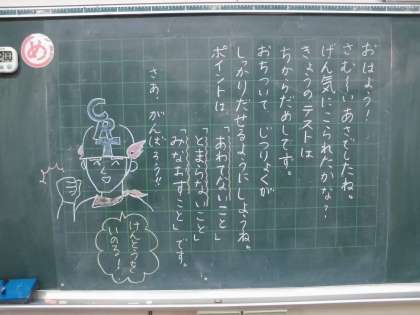 おはよう!
さむ〜いあさでしたね。
げん気にこられたかな?
きょうのテストは
ちからだめしです。
おちついて、じつりょくが
しっかりだせるようにしようね。
ポイントは、
「あわてないこと」
「とまらないこと」
「みなおすこと」です。
さあ、がんばろう!!
CRT
けんとうを
いのる!
め